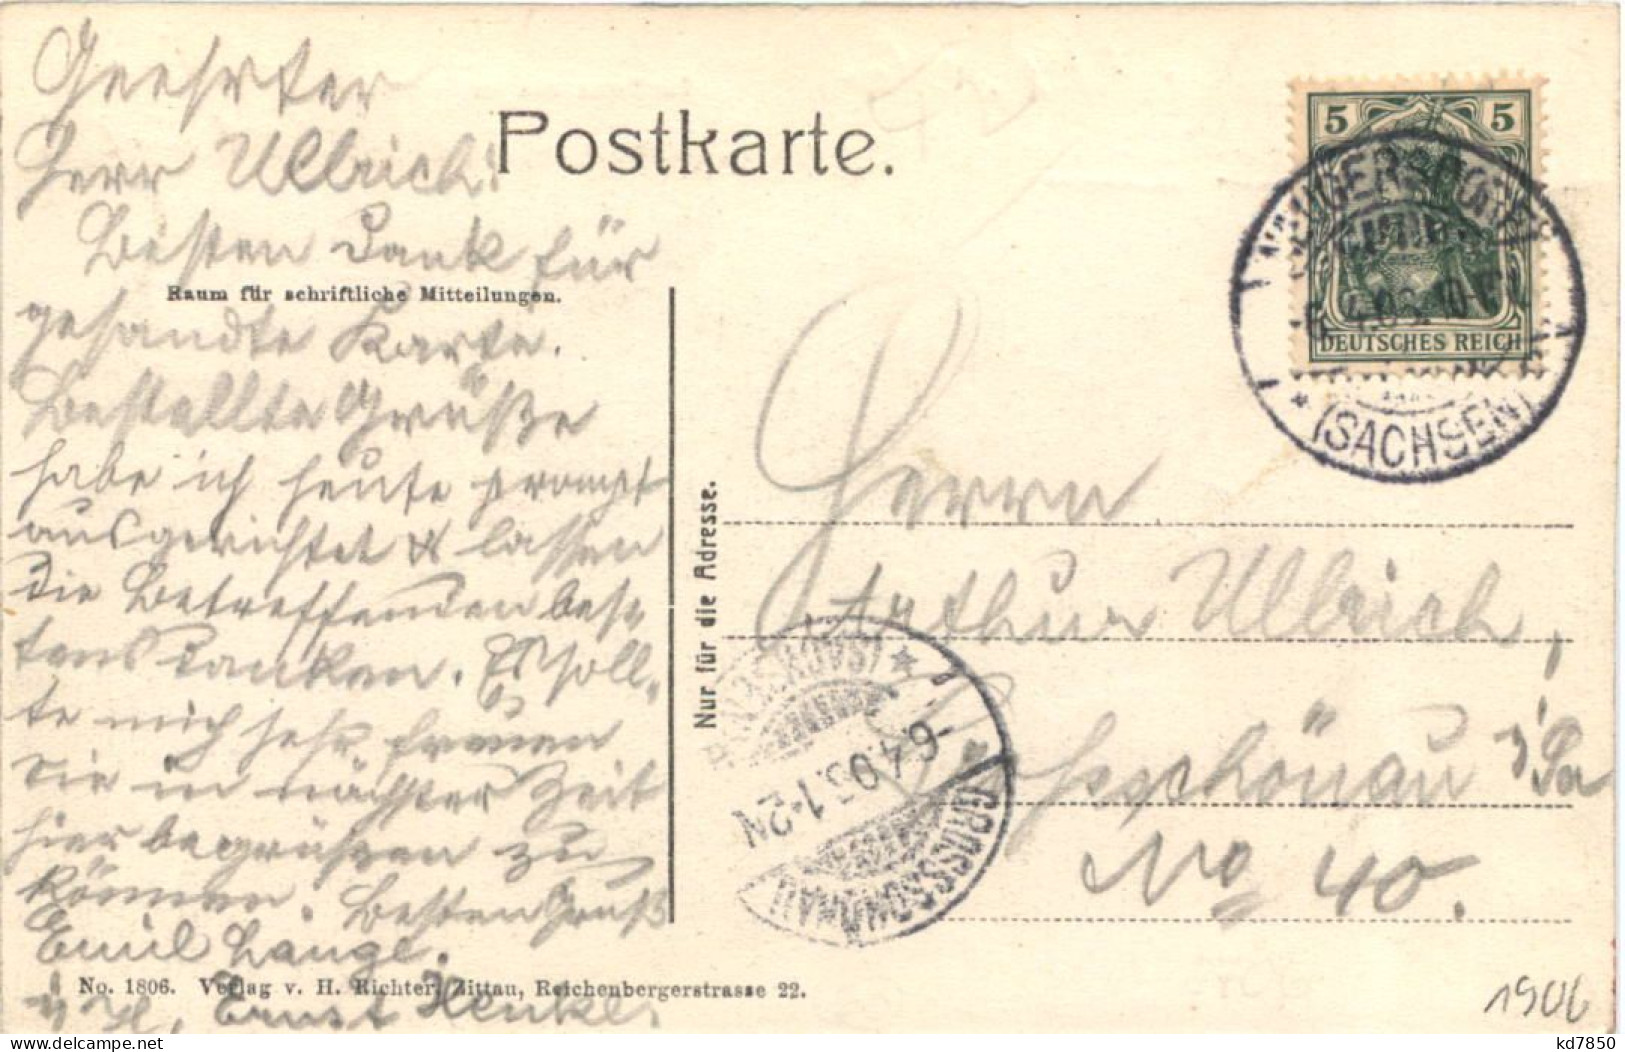 Geehrter
Herr Ullrich!
Postkarte.
Besten Dank für
Raum für schriftliche Mitteilungen.
gesandte Karte.
Bestellte Grüße
habe ich heute prompt
ausgerichtet & lassen
die Betreffenden bes-
tens danken. Es soll-
te mich sehr freuen
Sie in nächster Zeit
hier begrüßen zu
können. Besten Gruß
Emil Lange.
No. 1806. Verlag v. H. Richter, Zittau, Reichenbergerstrasse 22.
Ernst Henke.
5 5
DEUTSCHES REICH
(SACHSEN)
Nur für die Adresse.
Herrn
Arthur Ullrich,
Grossschönau i/Sa
No 40.
GROSSSCHÖNAU
(SACHSEN)
6.4.06. 1-2N
1906
kd7850